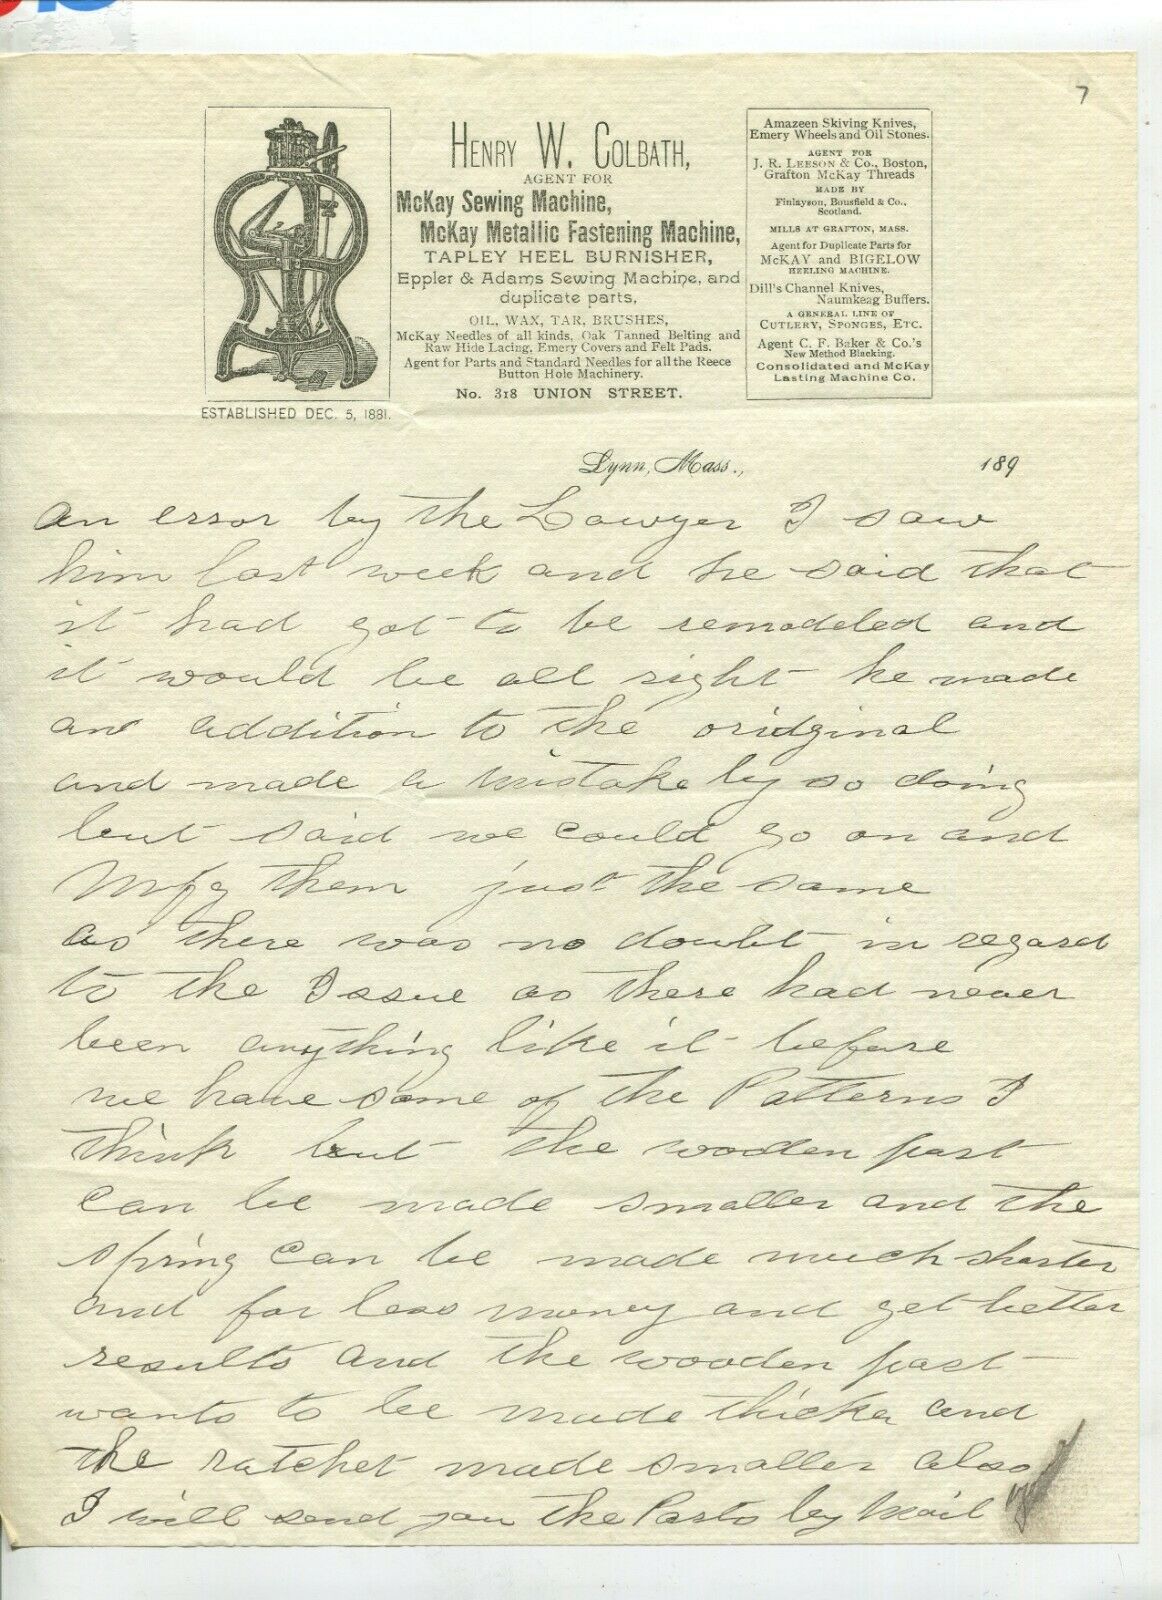 7
HENRY W. COLBATH,
AGENT FOR
McKay Sewing Machine,
McKay Metallic Fastening Machine,
TAPLEY HEEL BURNISHER,
Eppler & Adams Sewing Machine, and
duplicate parts,
OIL, WAX, TAR, BRUSHES,
McKay Needles of all kinds, Oak Tanned Belting and
Raw Hide Lacing, Emery Covers and Felt Pads.
Agent for Parts and Standard Needles for all the Reece
Button Hole Machinery.
No. 318 UNION STREET.
ESTABLISHED DEC. 5, 1881.
Amazeen Skiving Knives,
Emery Wheels and Oil Stones.
AGENT FOR
J. R. LEESON & Co., Boston,
Grafton McKay Threads
MADE BY
Finlayson, Bousfield & Co.,
Scotland.
MILLS AT GRAFTON, MASS.
Agent for Duplicate Parts for
McKAY and BIGELOW
HEELING MACHINE.
Dill's Channel Knives,
Naumkeag Buffers.
A GENERAL LINE OF
CUTLERY, SPONGES, ETC.
Agent C. F. Baker & Co.'s
New Method Blacking.
Consolidated and McKay
Lasting Machine Co.
Lynn, Mass., 189
an error by the Lawyer I saw
him last week and he said that
it had got to be remodeled and
it would be all right he made
an addition to the oridginal
and made a mistake by so doing
but said we could go on and
Mfg them just the same
as there was no doubt in regard
to the Issue as there had never
been anything like it before
we have some of the Patterns I
think but the wooden part
can be made smaller and the
spring can be made much shorter
and for less money and get better
results and the wooden part
wants to be made thicker and
the ratchet made smaller also
I will send you the Parts by Mail